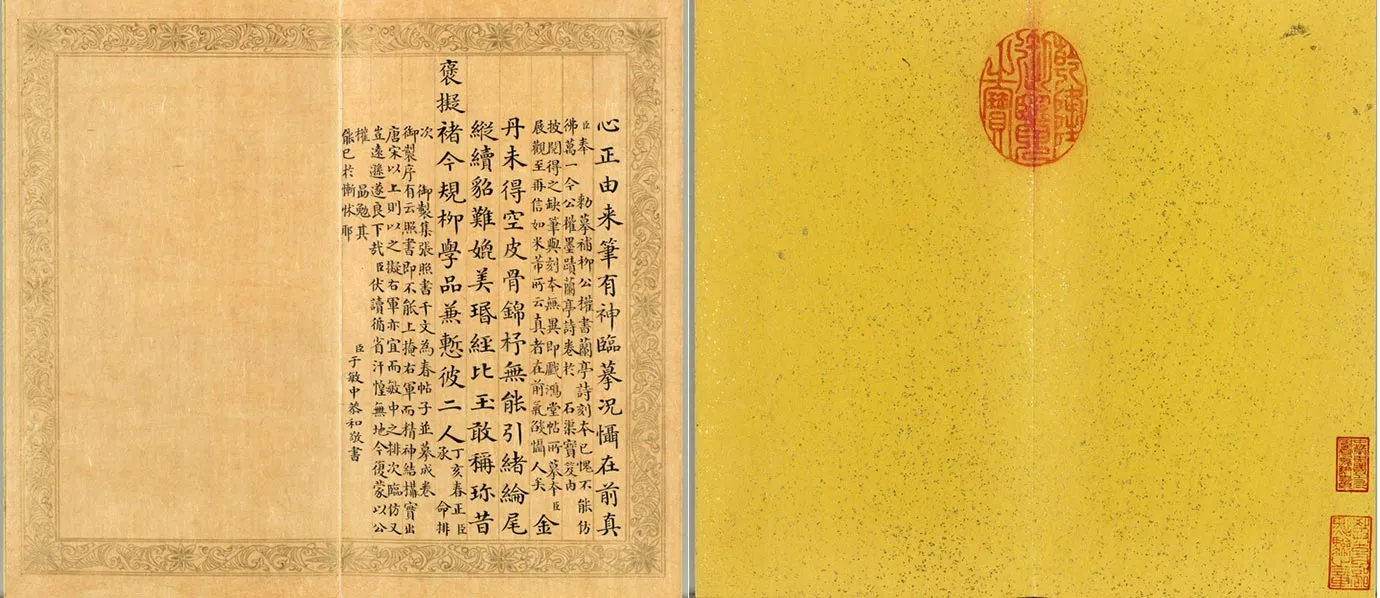 心正由来筆有神臨摹况懾在前真
臣奉 勅摹補柳公權書蘭亭詩刻本已愧不能仿
彿萬一今公權墨蹟蘭亭詩卷於 石渠寶笈内
披閲得之缺筆與刻本無異即戲鴻堂帖所摹本臣
展觀至再信如米芾所云真者在前氣燄懾人矣 金
丹未得空皮骨錦杼無能引緒綸尾
縱續貂難媲美瑉經比玉敢稱珎昔
褒擬褚今規柳學品兼慙彼二人 丁亥春正 臣
承 命排
次 御製集張照書千文為春帖子並摹成卷
御製序有云照書即不能上掩右軍而精神結搆實出
唐宋以上則以之擬右軍亦宜而敏中之排次臨仿又
豈遠遜遂良下哉臣伏讀循省汗惶無地今復蒙以公
權 品勉其
能已於慚怵耶
臣于敏中恭和敬書
乾隆御覽之寶